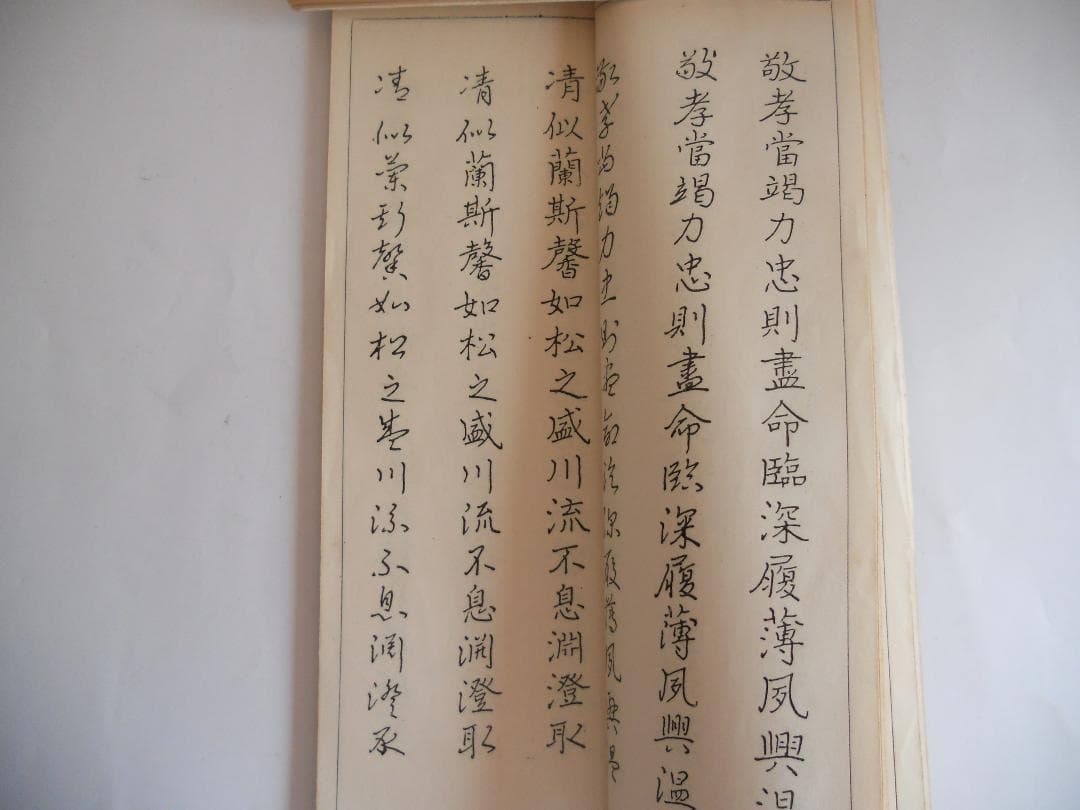 敬孝當竭力忠則盡命臨深履薄夙興温
敬孝當竭力忠則盡命臨深履薄夙興温
敬孝當竭力忠則盡命臨深履薄夙興温
凊似蘭斯馨如松之盛川流不息淵澄取
凊似蘭斯馨如松之盛川流不息渊澄取
凊似蘭斯馨如松之盛川流不息渊澄取